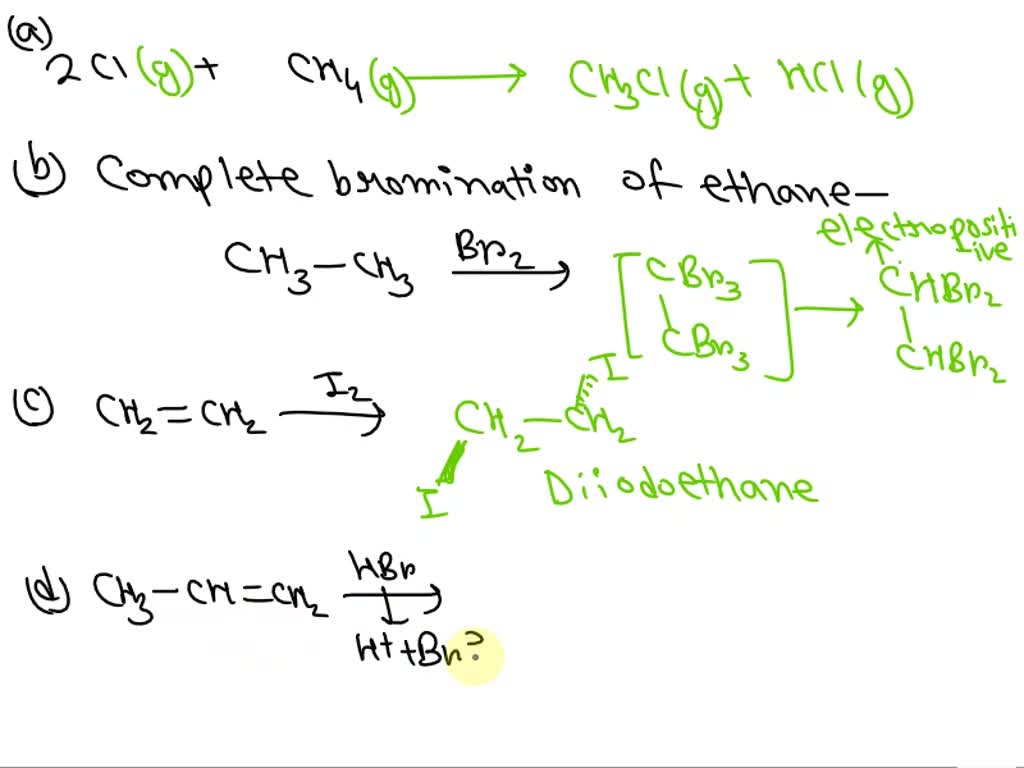 (a)
2Cl(g) + CH4(g) ⟶ CH3Cl(g) + HCl(g)
(b) Complete bromination of ethane—
CH3—CH3 Br2⟶ [CBr3
CBr3] ⟶ CHBr2
CHBr2
electropositi
ive
(c) CH2=CH2 I2⟶ CH2—CH2
I
I
Diiodoethane
(d) CH3—CH=CH2 HBr⟶
H+ + Br